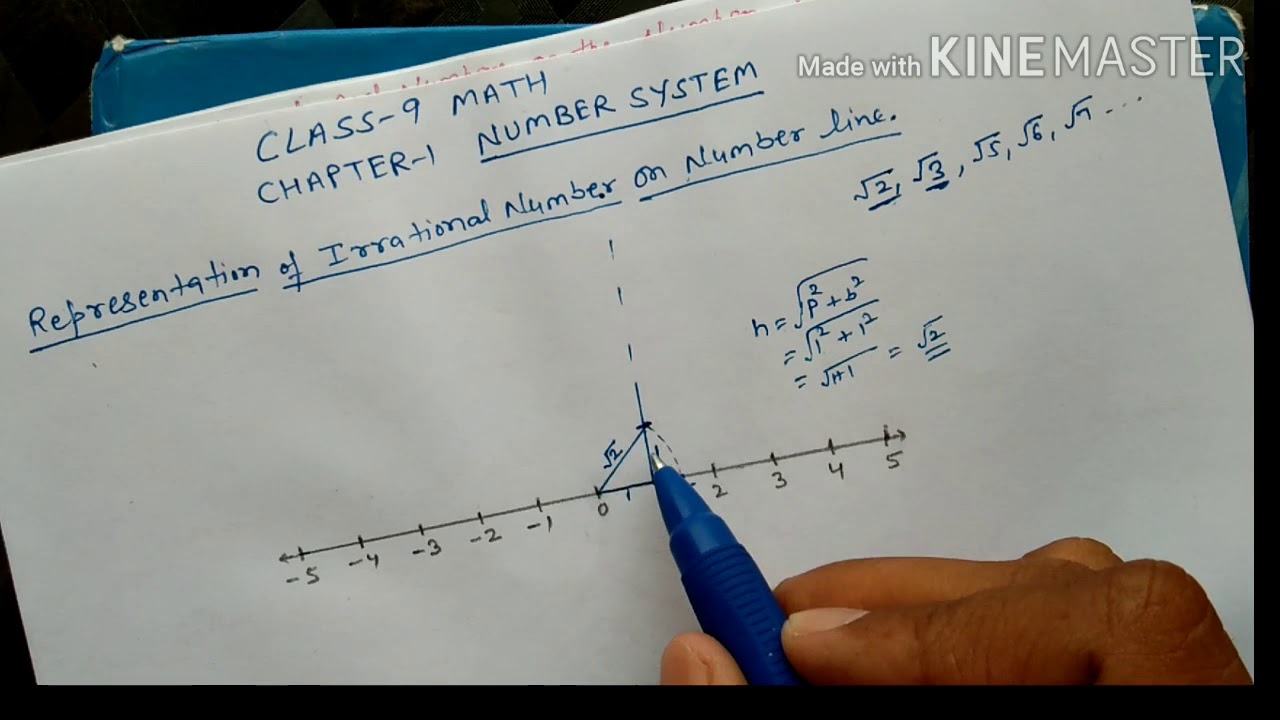 Made with KINEMASTER
CLASS-9 MATH
CHAPTER-1 NUMBER SYSTEM
Representation of Irrational Number on Number line.
√2, √3, √5, √6, √7 ...
h = √p² + b²
= √1² + 1²
= √1+1 = √2
√2
1
1
-5 -4 -3 -2 -1 0 2 3 4 5